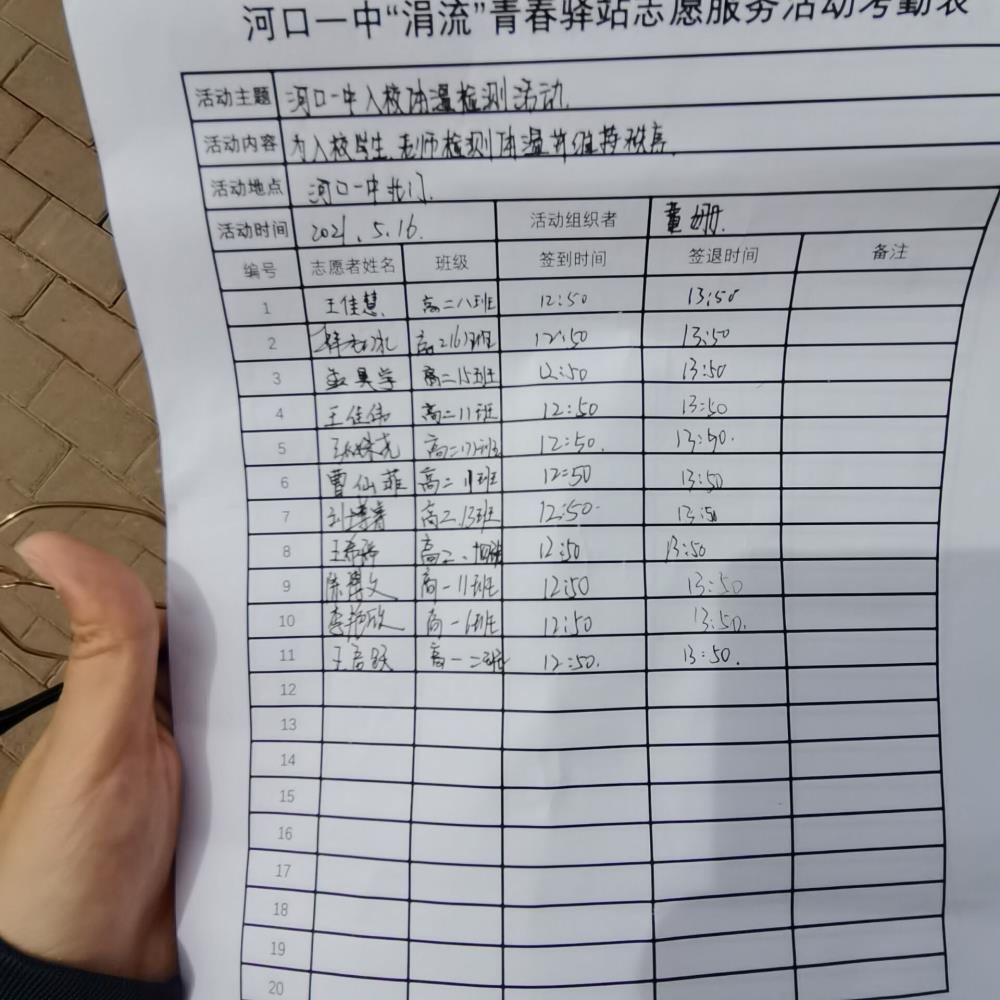 河口一中“涓流”青春驿站志愿服务活动考勤表
活动主题 河口一中入校体温检测活动
活动内容 为入校学生、老师检测体温并维持秩序
活动地点 河口一中北门
活动时间 2021.5.16. 活动组织者 董姗
编号 志愿者姓名 班级 签到时间 签退时间 备注
1 王佳慧 高二八班 12:50 13:50
2 高二16班 12:50 13:50
3 高二15班 12:50 13:50
4 王佳伟 高二11班 12:50 13:50
5 12:50. 13:50.
6 曹仙菲 高二 11班 12:50 13:50
7 高二.13班 12:50. 13:50
8 高二. 12:50 13:50
9 高一11班 12:50 13:50
10 高一6班 12:50 13:50.
11 高一二班 12:50. 13:50.
12
13
14
15
16
17
18
19
20